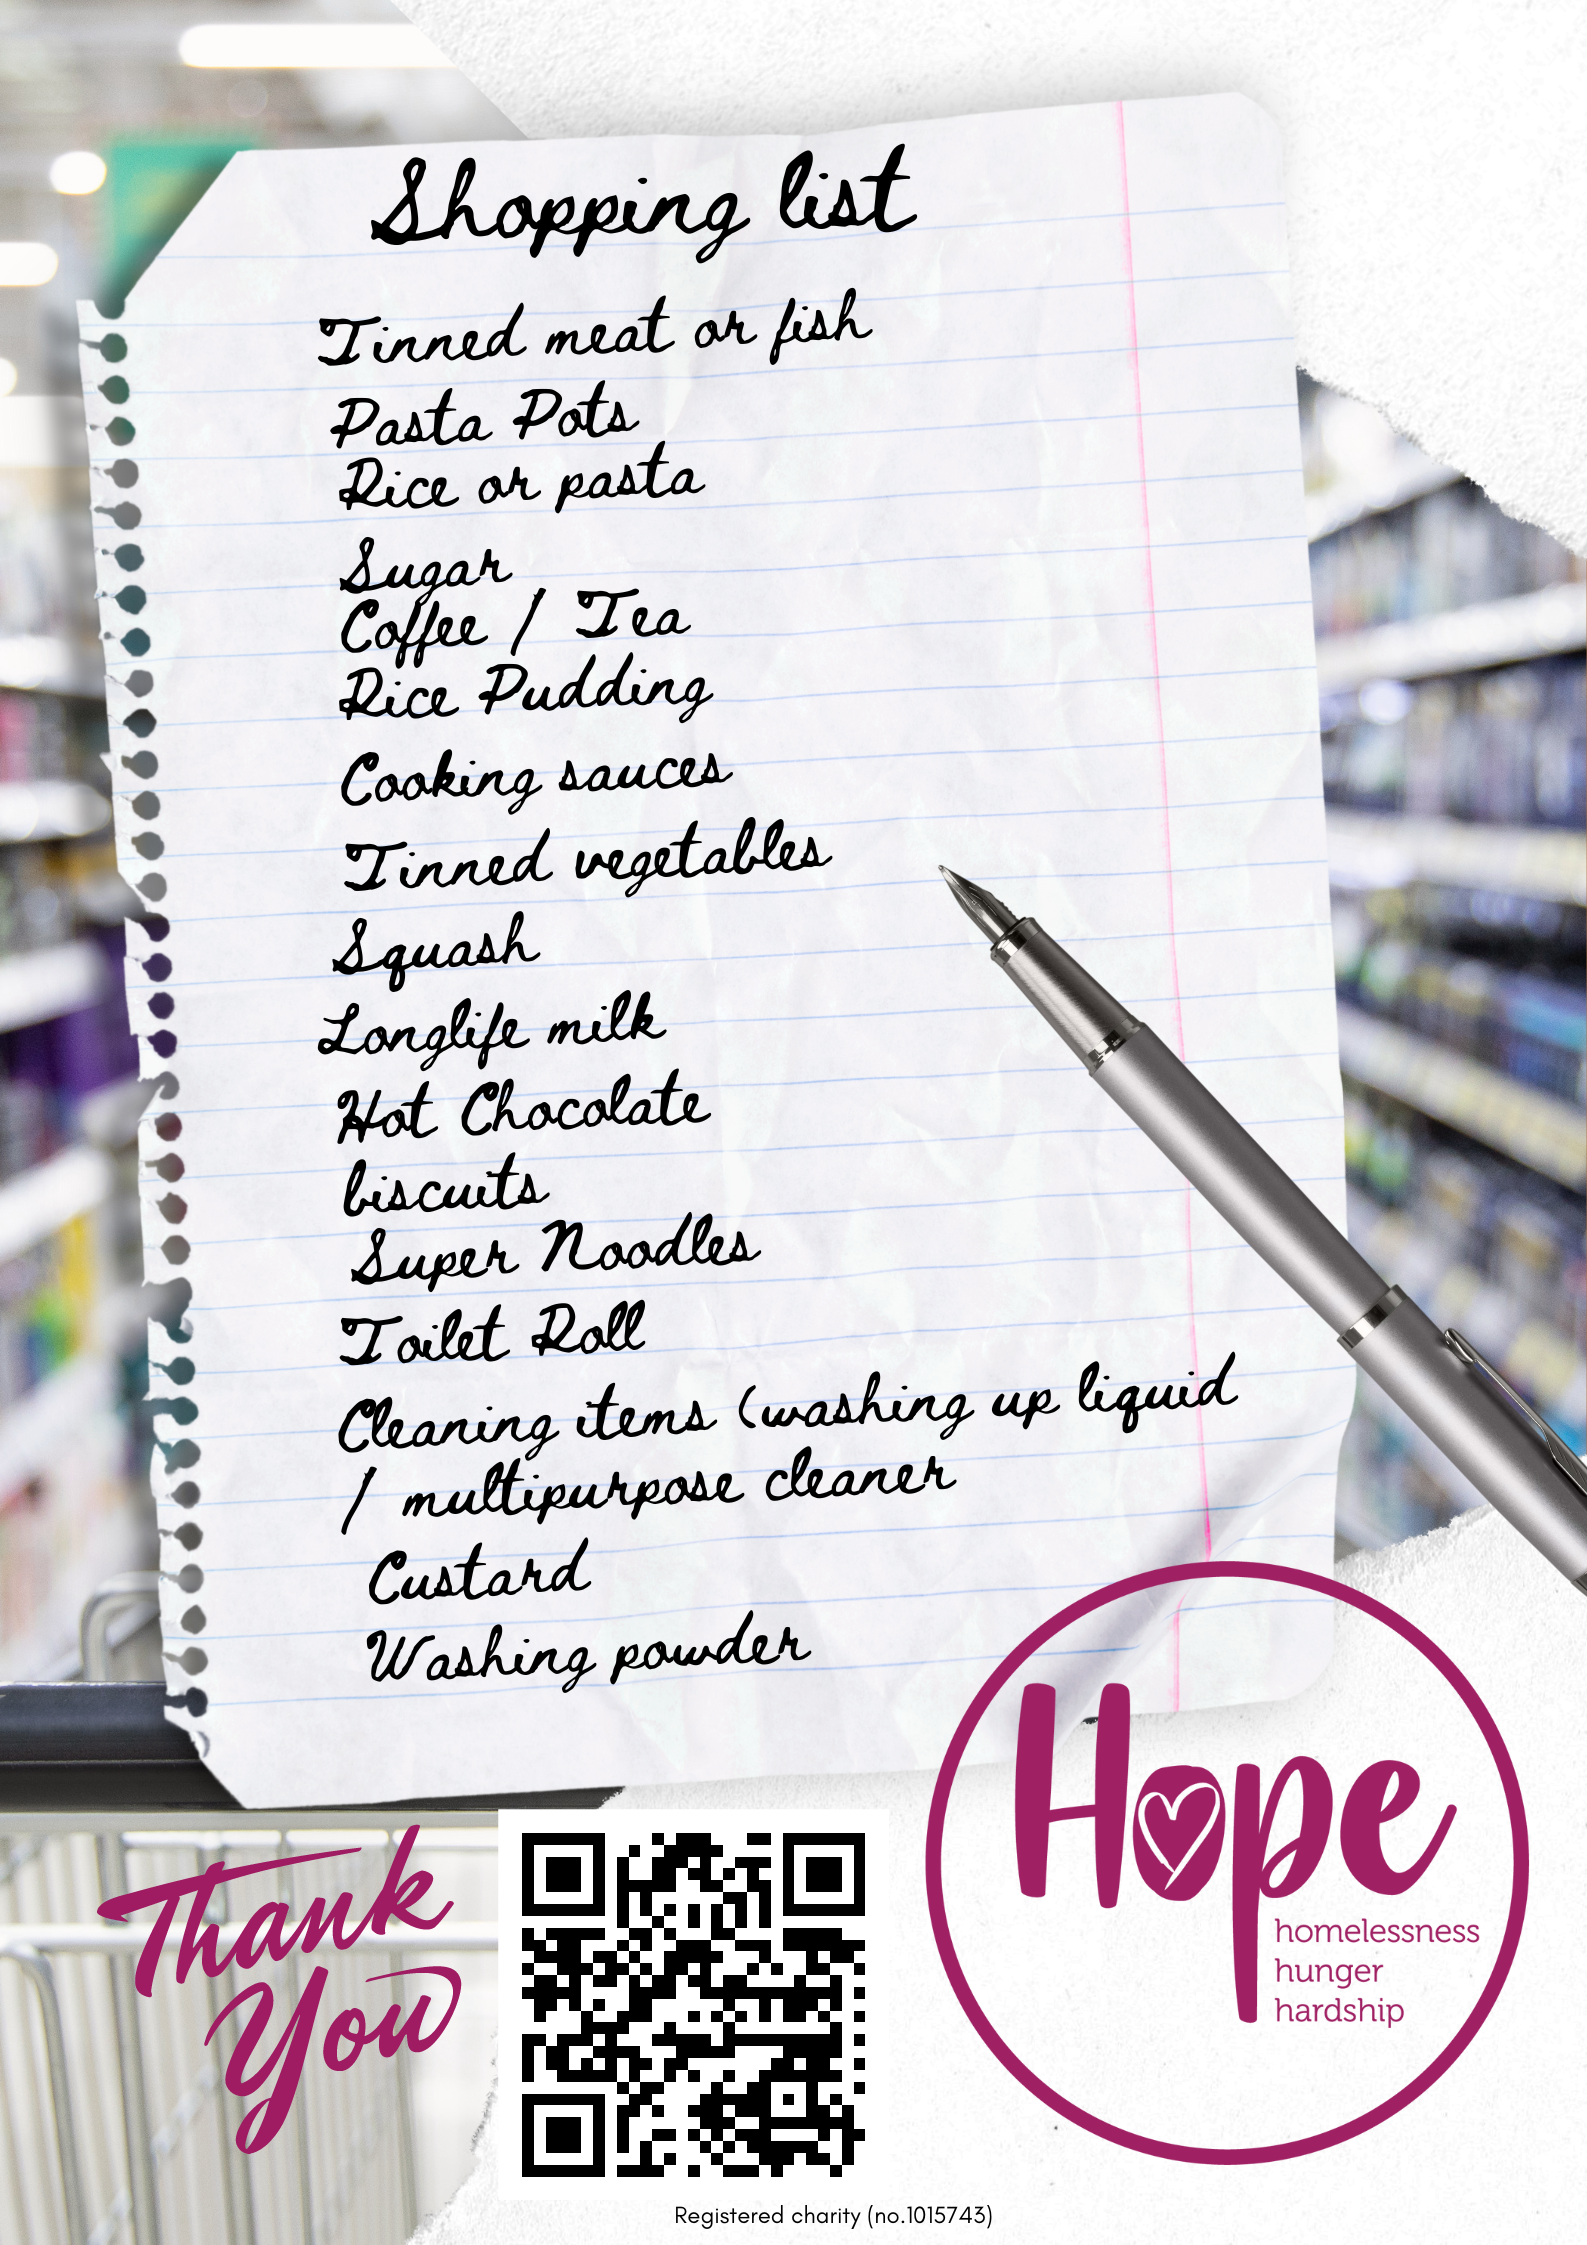 Shopping list
Tinned meat or fish
Pasta Pots
Rice or pasta
Sugar
Coffee / Tea
Rice Pudding
Cooking sauces
Tinned vegetables
Squash
Longlife milk
Hot Chocolate
biscuits
Super Noodles
Toilet Roll
Cleaning items (washing up liquid
/ multipurpose cleaner
Custard
Washing powder
Thank
You
Hope
homelessness
hunger
hardship
Registered charity (no.1015743)